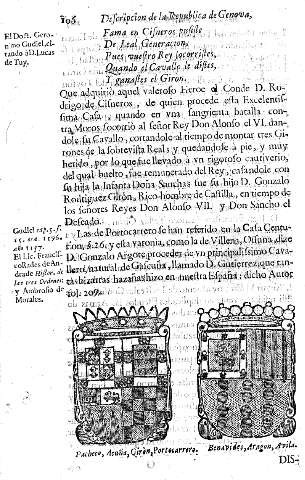 108 Descripcion de la Republica de Genova,
El Doct. Gero-
nimo Gudiel, ci-
tando à D. Lucas
de Tuy.
Fama en Cisneros posiste
De Leal Generacion,
Pues vuestro Rey socorristes,
Quando el Cavallo le distes,
Y ganastes el Giron.
Que adquiriò aquel valeroso Heroe el Conde D. Ro-
drigo de Cisneros, de quien procede esta Excelentis-
sima Casa, quando en vna sangrienta batalla con-
tra Moros socorriò al señor Rey Don Alonso el VI. dan-
dole su Cavallo, cortandole al tiempo de montar tres Gi-
rones de la sobrevista Real, y quedandose à pie, y muy
herido, por lo que fue llevado à vn rigoroso cautiverio,
del qual buelto, fue remunerado del Rey, casandole con
su hija la Infanta Doña Sancha; fue su hijo D. Gonzalo
Rodriguez Giron, Rico-hombre de Castilla, en tiempo de
los señores Reyes Don Alonso VII. y Don Sancho el
Deseado.
Gudiel cap. 5. f.
15. era 1196.
año 1157.
El Lic. Francis-
co Rades de An-
drade Histor. de
las tres Ordenes,
y Ambrosio de
Morales.
Las de Portocarrero se han referido en la Casa Centu-
rion, §. 26. y esta varonia, como la de Villena, Ossuna, dize
D. Gonzalo Argote, procede de vn principalissimo Cava-
llero, natural de Gascuña, llamado D. Gutierrez, que tan-
tas bizarras hazañas hizo en nuestra España; dicho Autor
fol. 209.
Pacheco, Acuña, Giron, Portocarrero. Benavides, Aragon, Avila.
DIS-